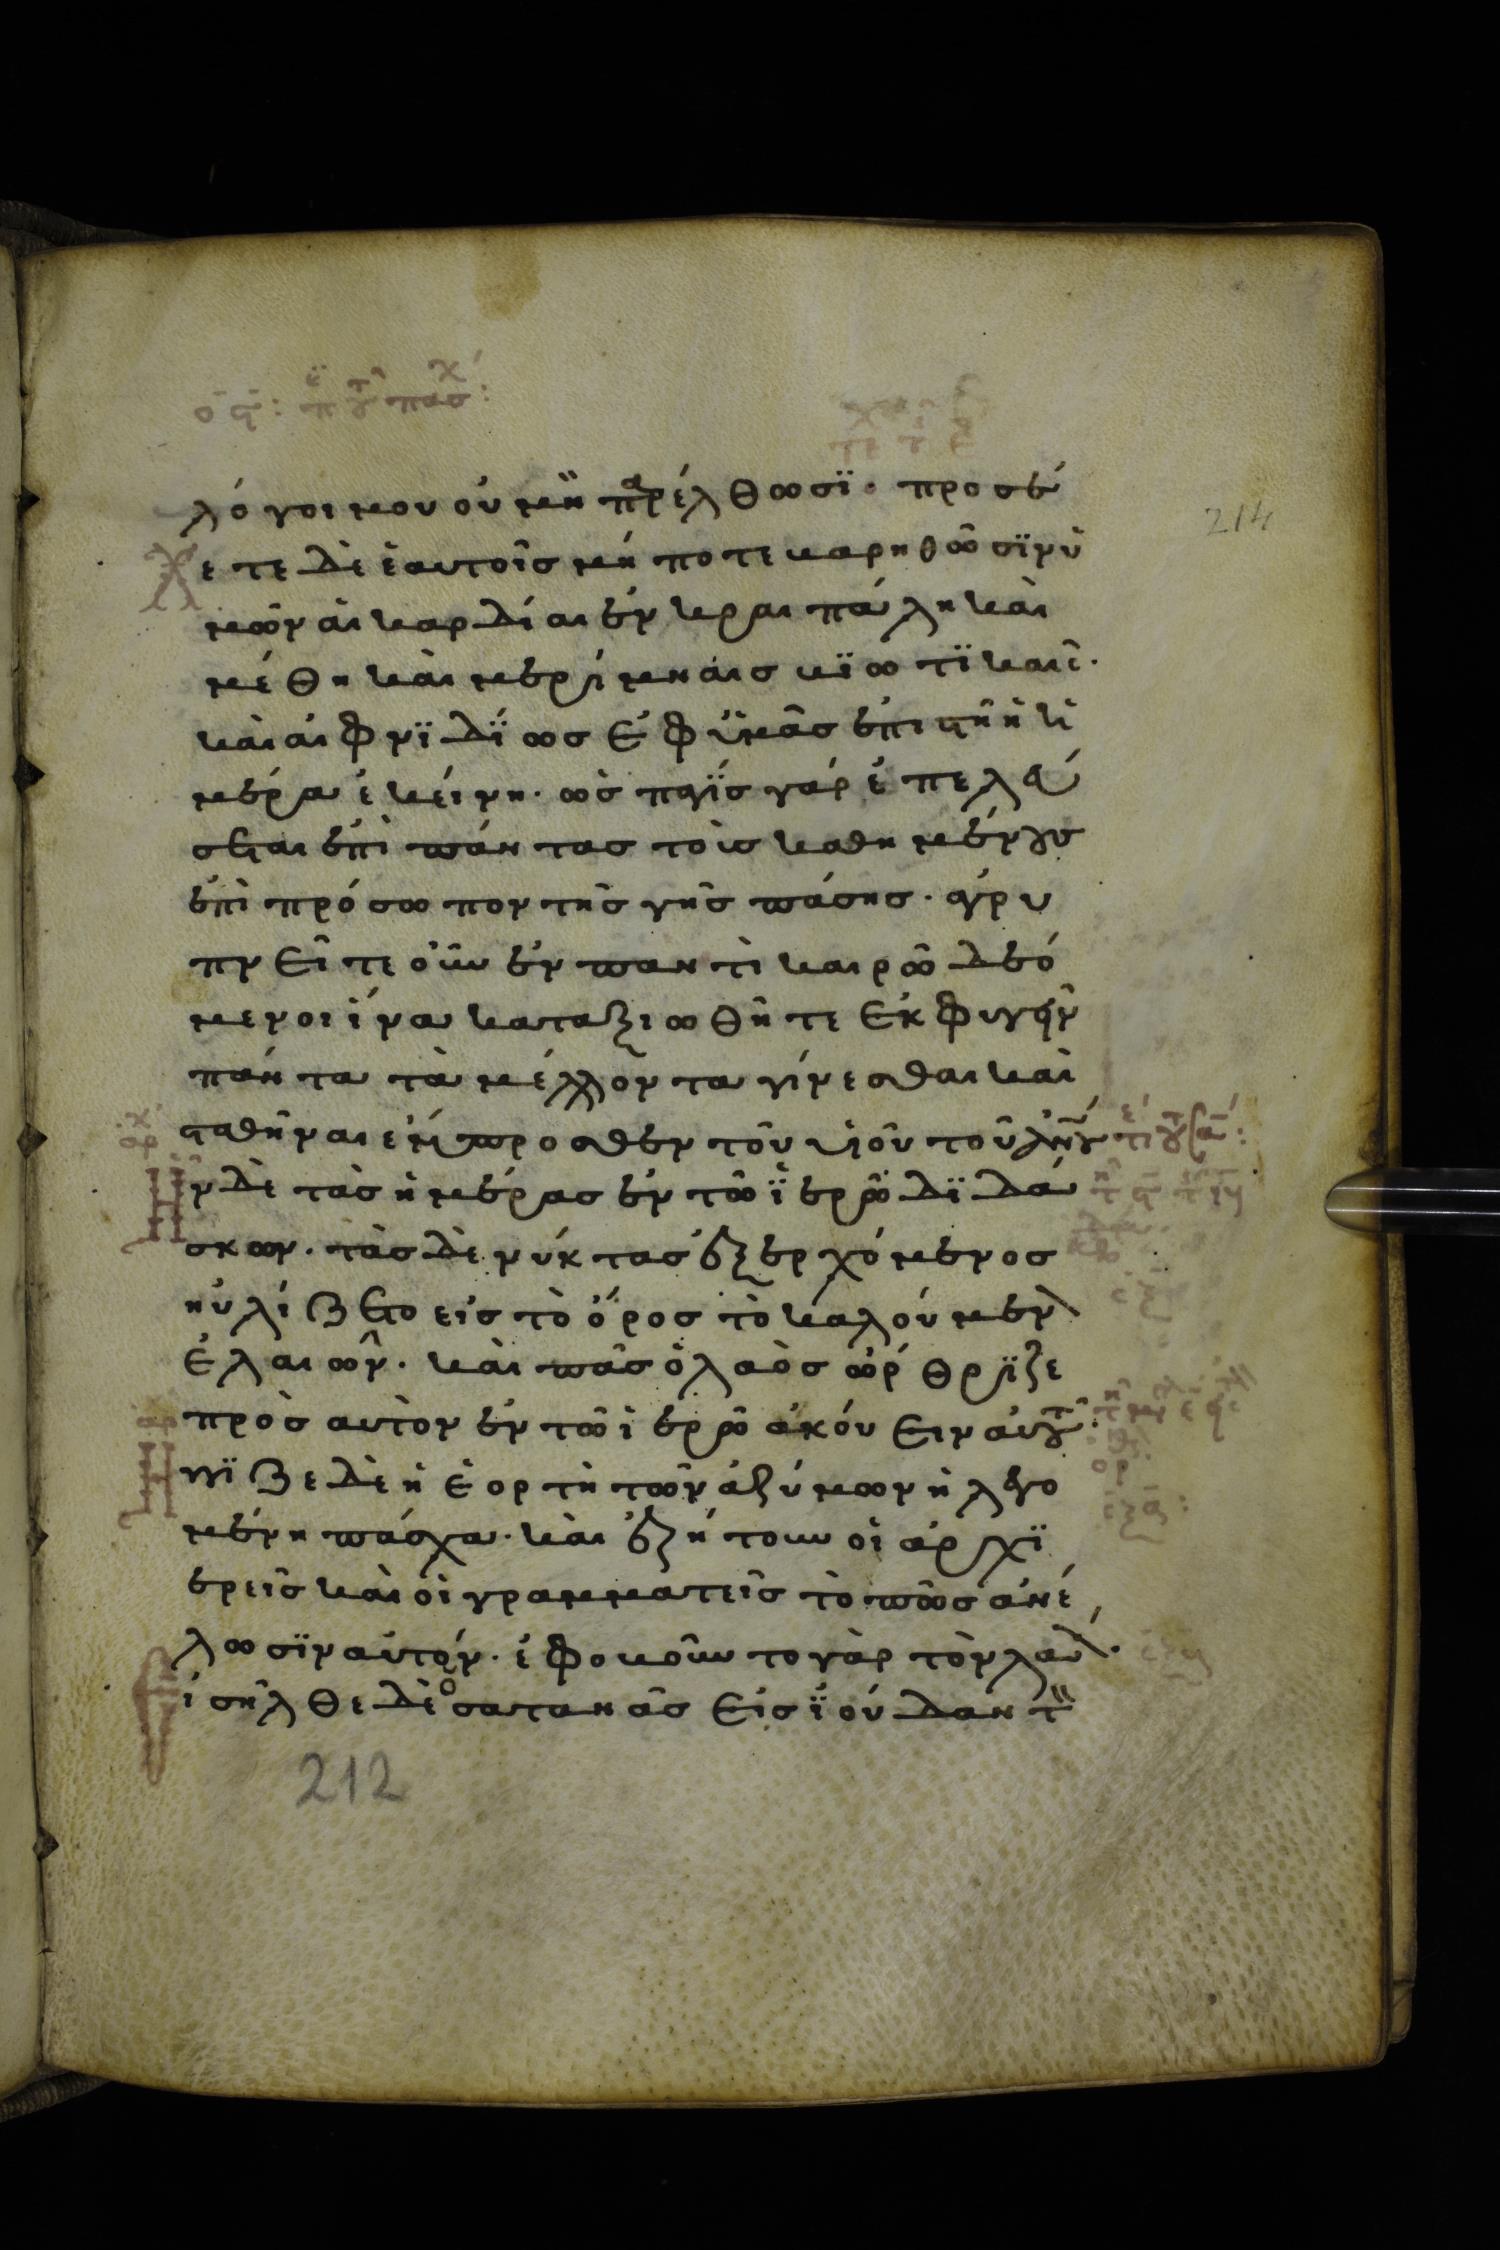 λόγοι μου οὐ μὴ παρέλθωσϊ· προσέ
χετε δὲ ἑαυτοῖς μή ποτε καρηθῶσϊν ὑ
μῶν ἁι καρδίαι ἐν κραιπάλη καὶ
μέθη καὶ μερίμναις βϊωτϊκαῖς·
καὶ αἰφνϊδΐως ἐφ ὑμᾶς ἐπιστῆ ἡ ἡ
μέρα ἐκείνη· ὡς παγῒς γάρ ἐπελεύ
σεται ἐπὶ πάντας τοὺς καθημένους
ἐπὶ πρόσωπον τῆς γῆς πάσης· ἀγρυ
πνεῖτε οὖν ἐν παντὶ καιρῶ δεό
μενοι ἵνα καταξιωθῆτε ἐκφυγεῖν
πάντα τὰ μέλλοντα γίνεσθαι καὶ
σταθῆναι ἔμπροσθεν τοῦ υἱοῦ τοῦ ἀνου
Ἦν δὲ τὰς ἡμέρας ἐν τῶ ϊερῶ δϊδά
σκων· τὰς δὲ νύκτας ἐξερχόμενος
ηὐλίζετο εἰς τὸ ὄρος τὸ καλούμενον
ἐλαιῶν· καὶ πᾶς ὁ λαὸς ὤρθρϊζε
πρὸς αὐτὸν ἐν τῶ ἱερῶ ἀκούειν αὐτοῦ·
Ἤγγϊζε δὲ ἡ ἑορτὴ τῶν ἀζύμων ἡ λεγο
μένη πάσχα· καὶ ἐζήτουν οἱ ἀρχϊ
ερεῖς καὶ οἱ γραμματεῖς τὸ πῶς ἀνέ
λωσϊν αὐτόν· ἐφοβοῦντο γὰρ τὸν λαόν·
Εἰσῆλθε δὲ ὁ σατανᾶς εἰς ϊούδαν τὸν
214
212